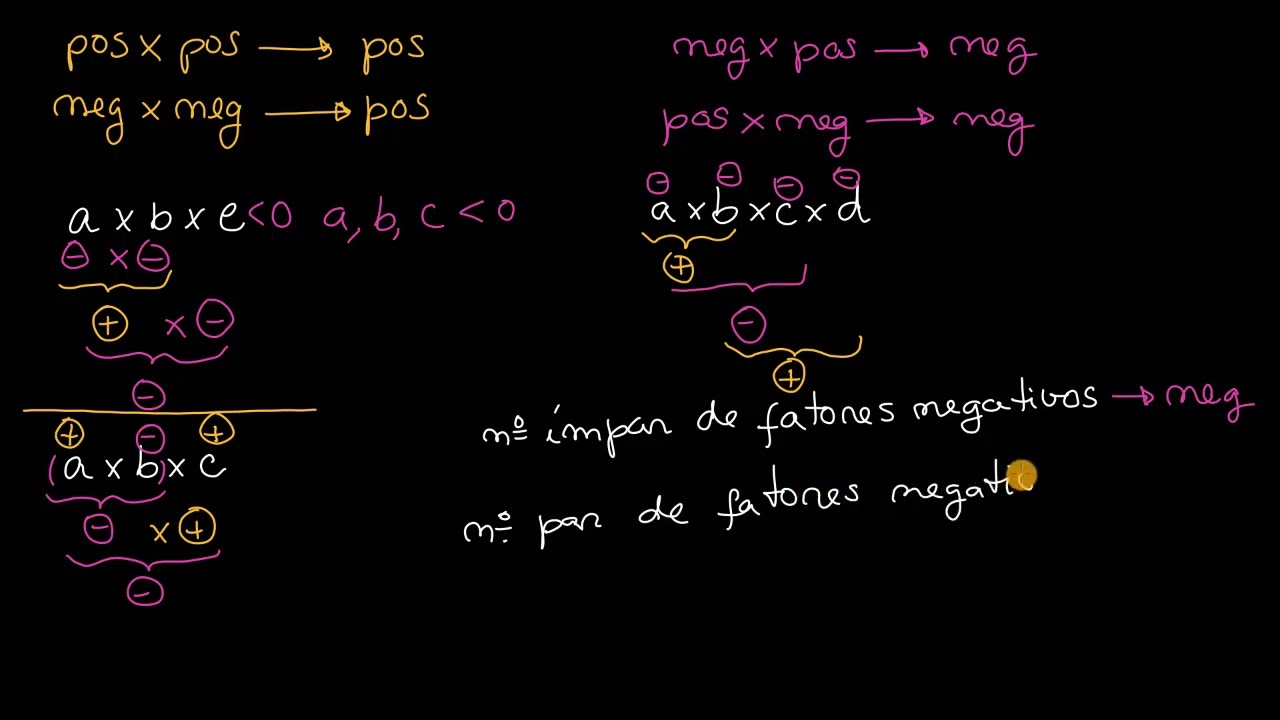 pos x pos → pos
neg x neg → pos
neg x pos → neg
pos x neg → neg
a x b x c < 0 a, b, c < 0
⊖ x ⊖
⊕ x ⊖
⊖
⊕ ⊖ ⊕
(a x b) x c
⊖ x ⊕
⊖
⊖ ⊖ ⊖ ⊖
a x b x c x d
⊕
⊖
⊕
nº ímpar de fatores negativos → neg
nº par de fatores negati